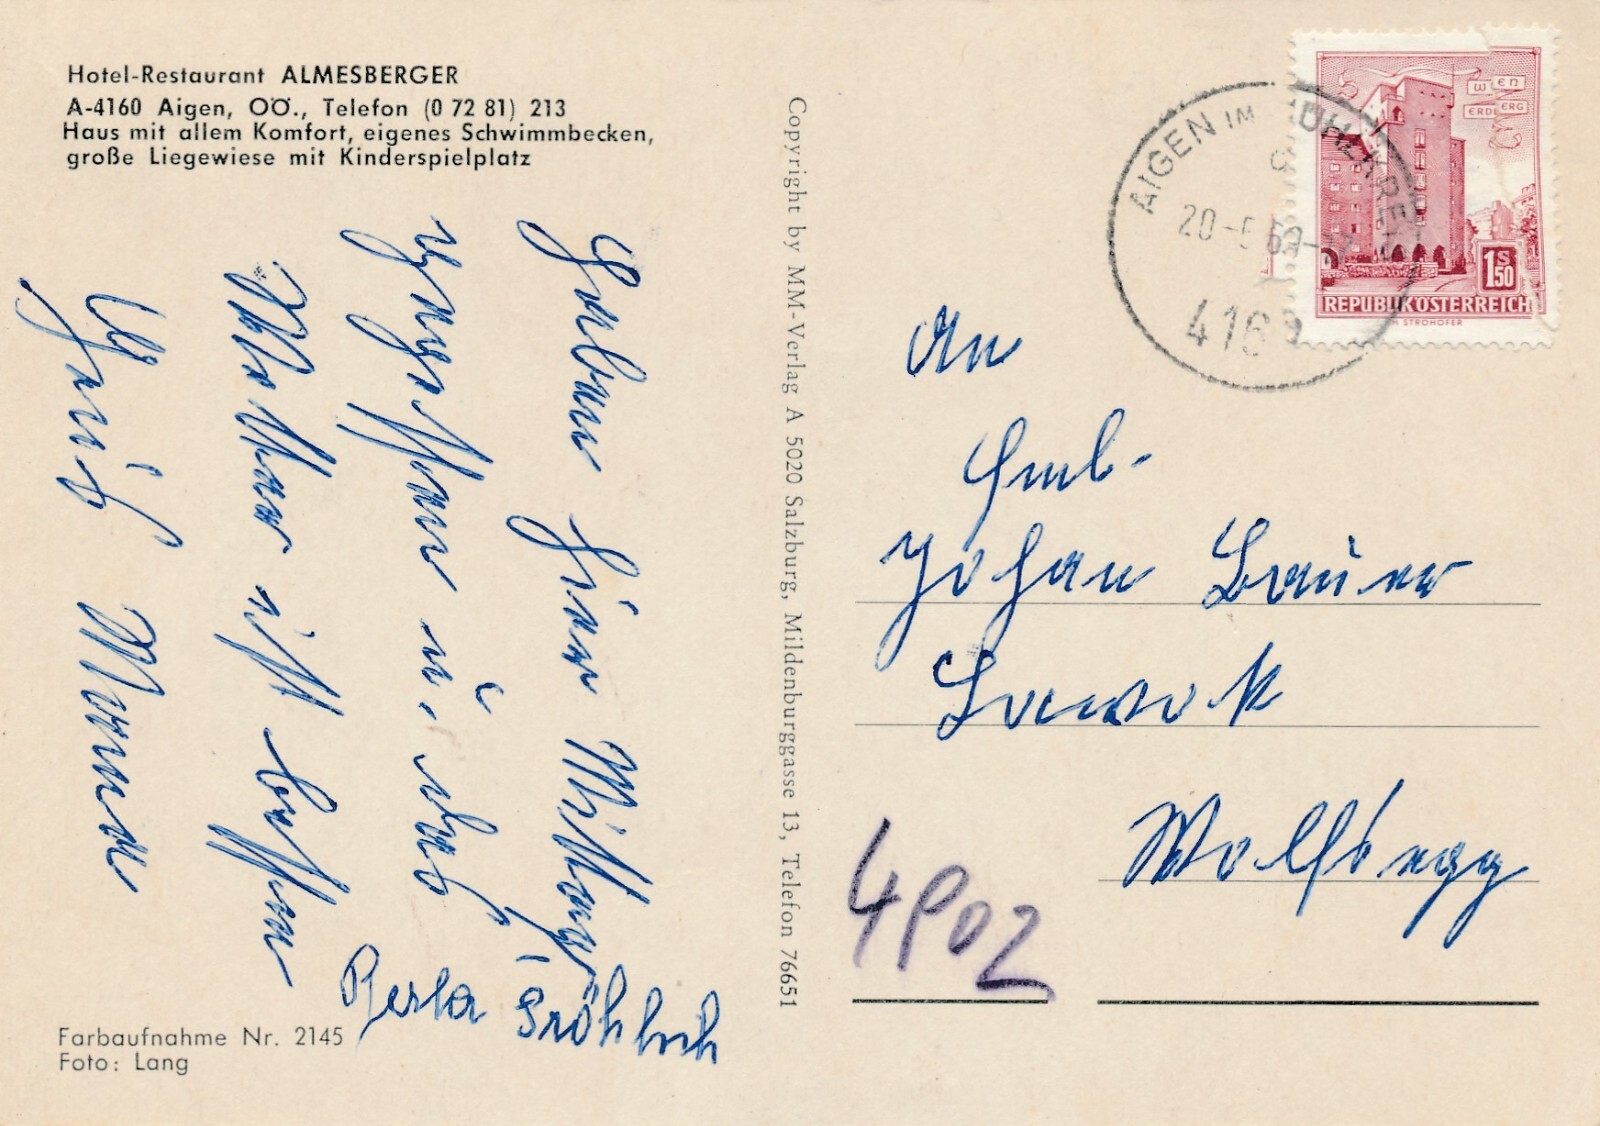 Hotel-Restaurant ALMESBERGER
A-4160 Aigen, OÖ., Telefon (0 72 81) 213
Haus mit allem Komfort, eigenes Schwimmbecken,
große Liegewiese mit Kinderspielplatz
Haben hier Mittag
gegessen u. das
Wetter ist besser
wie Gestern
Fröhlich
Farbaufnahme Nr. 2145
Foto: Lang
Copyright by MM-Verlag A 5020 Salzburg, Mildenburggasse 13, Telefon 76651
AIGEN IM MÜHLKREIS
20-5 69
416
WIEN
ERDBERG
1S50
REPUBLIK ÖSTERREICH
H. STROHOFER
An
Johan Bauer
Wolfsegg
4902